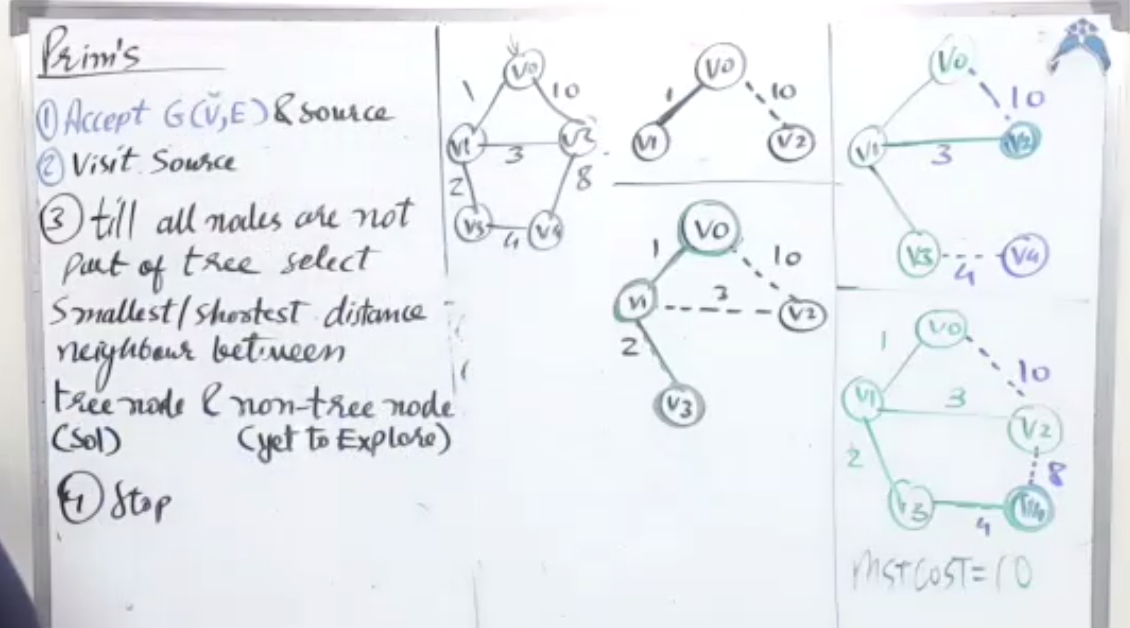 Prim's
① Accept G(V,E) & source
② Visit Source
③ till all nodes are not
part of tree select
smallest/shortest distance
neighbour between
tree node & non-tree node
(Sol) (yet to Explore)
④ Stop
V0
1 10
V1 3 V2
2 8
V3 4 V4
V0
1 10
V1 V2
V0
1 10
V1 3 V2
2
V3
V0
10
V1 3 V2
V3 4 V4
V0
1 10
V1 3 V2
2 8
V3 4 V4
MST COST = 10